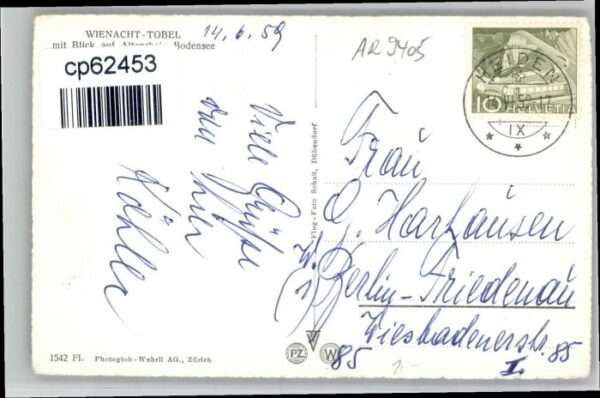 WIENACHT-TOBEL
mit Blick auf Altenrhein Bodensee
cp62453
14.6.59
AR 9405
HEIDEN
IX
10 HELVETIA
Viele Grüße
von hier
Köhler
Flug-Foto Schult, Dübendorf
Frau
G. Harhausen
Berlin-Friedenau
Wiesbadenerstr. 85
I.
85
1.-
1542 Fl. Photoglob-Wehrli AG., Zürich
PZ W